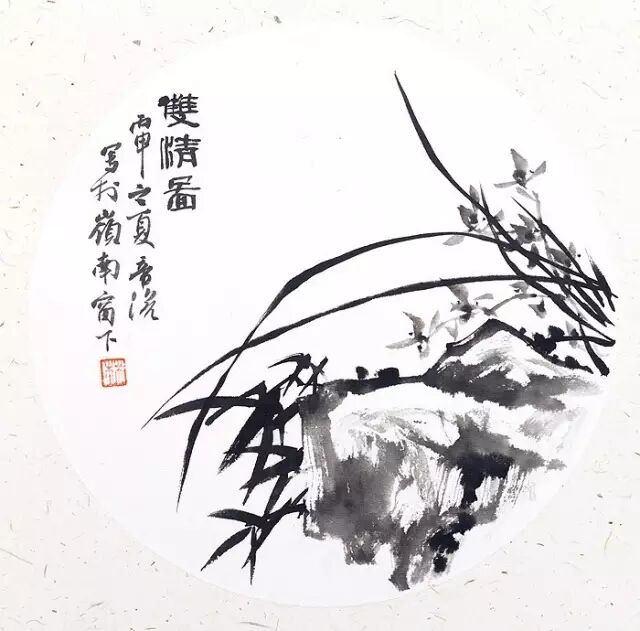 雙清啚
丙申之夏
寫於嶺南窗下